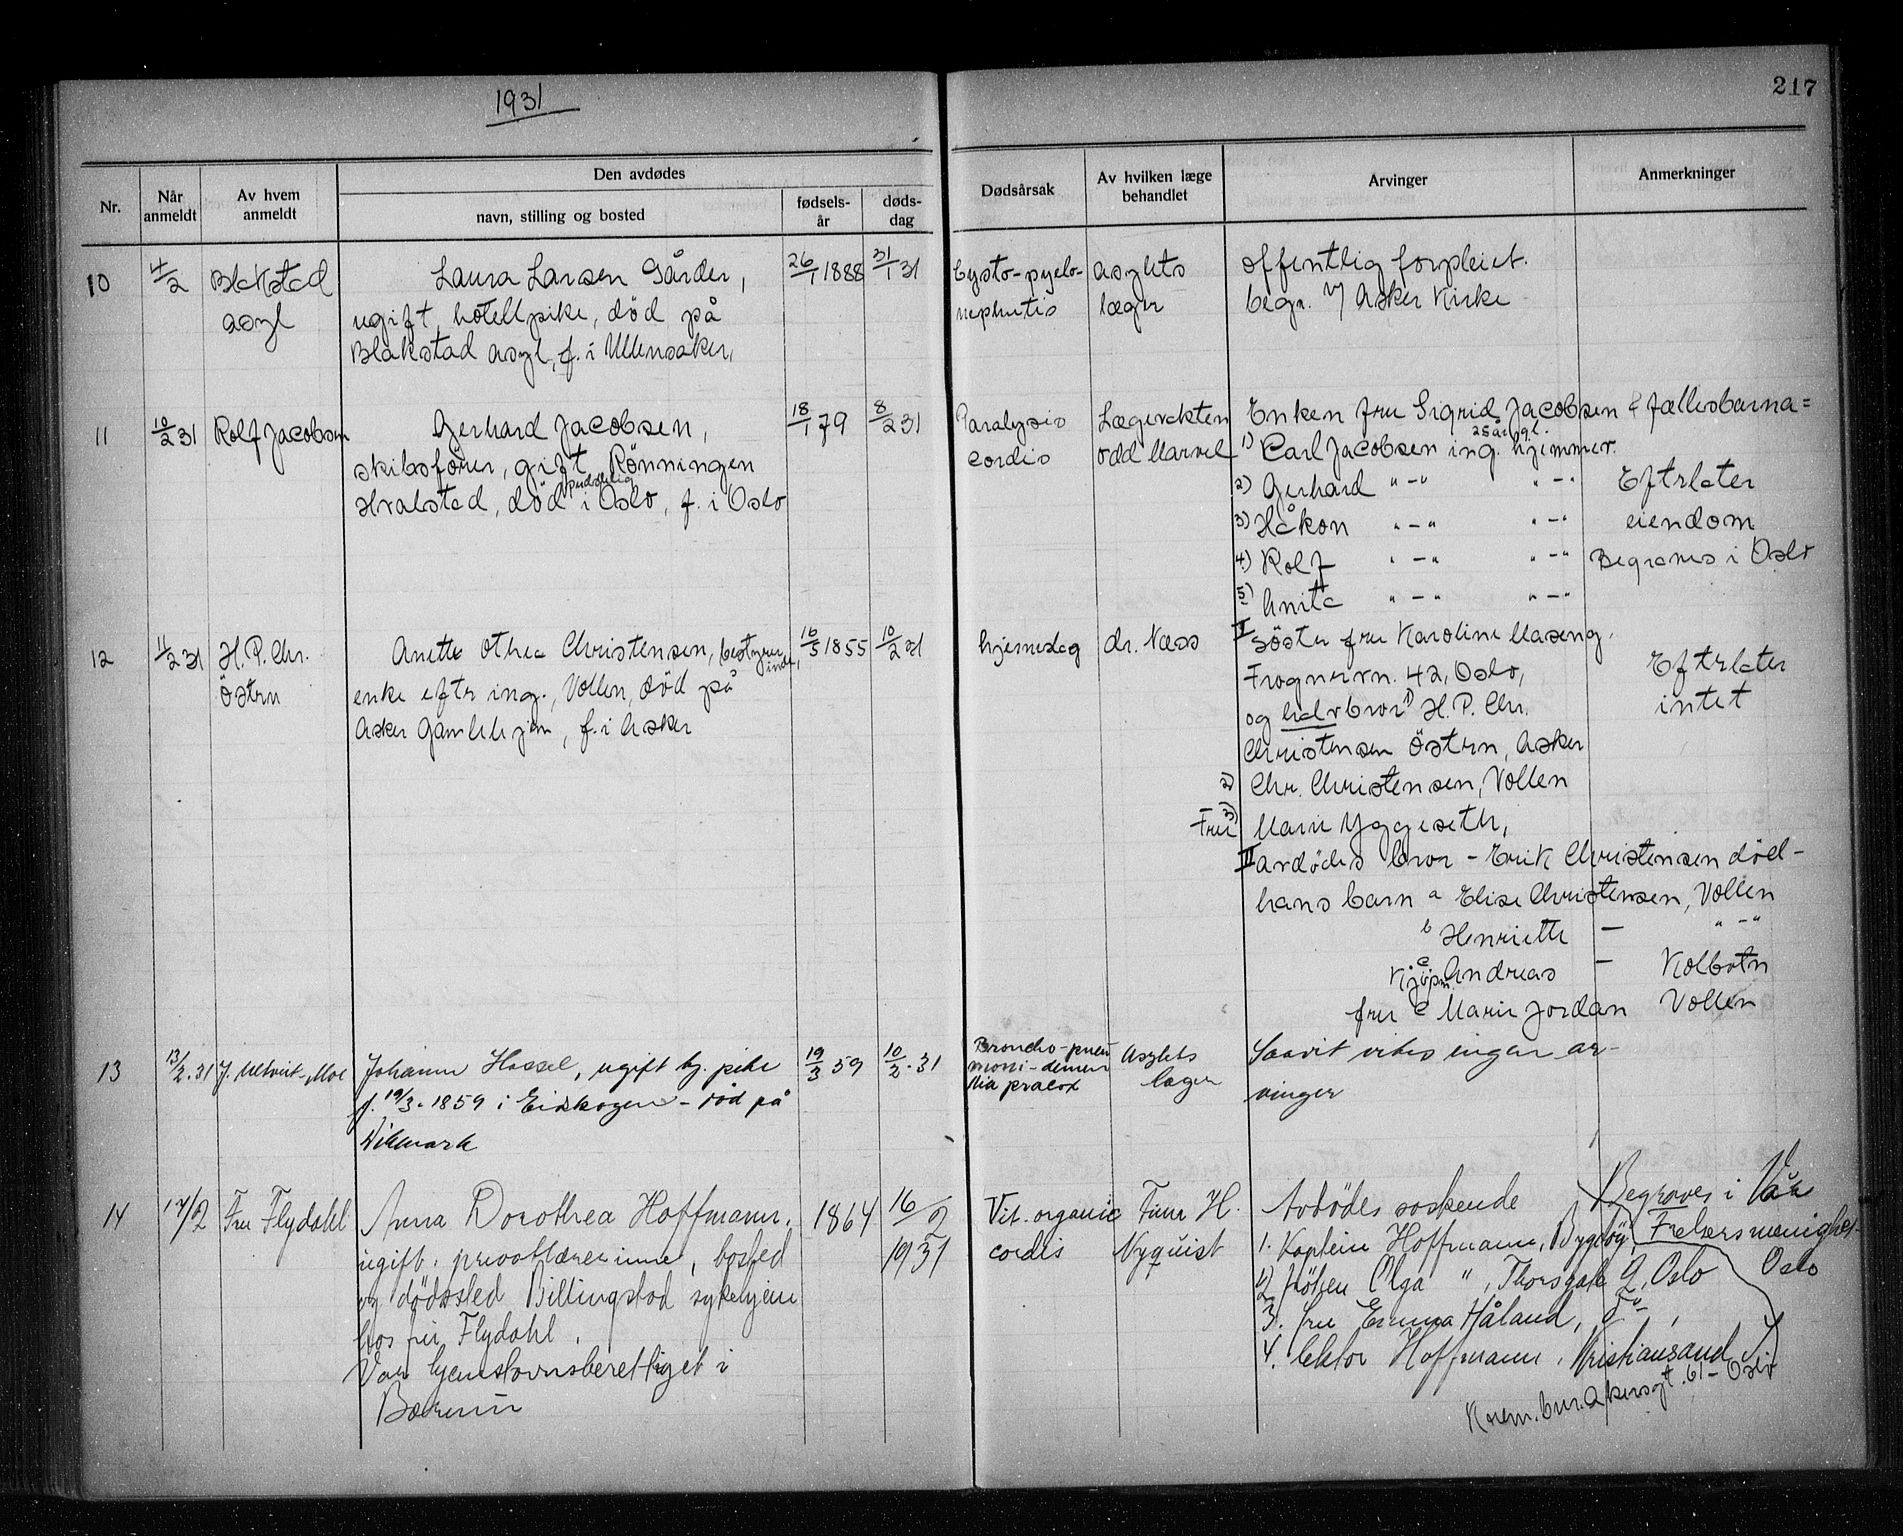 1931
217
Nr.
Når anmeldt
Av hvem anmeldt
Den avdødes
navn, stilling og bosted
fødsels-år
døds-dag
Dødsårsak
Av hvilken læge behandlet
Arvinger
Anmerkninger
10
4/2
Blakstad
asyl
Laura Larsen Gårder,
ugift, hotellpike, død på
Blakstad asyl, f. i Ullensaker,
26/1 1888
31/1 31
Cysto-pyelo-
nephritis
asylets
læger
offentlig forpleiet.
begr. v/ Asker Kirke
11
10/2 31
Rolf Jacobsen
Gerhard Jacobsen,
skibsfører, gift, Rönningen
Hvalstad, død pludselig i Oslo, f. i Oslo
18/1 79
8/2 31
Paralysis
cordis
Lægevakten
Odd Marvel
Enken fru Sigrid Jacobsen & fællesbarna=
1) Carl Jacobsen ing. 25 år gl. hjemmev.
2) Gerhard " – " " – "
3) Håkon " – " " – "
4) Rolf " – " " – "
5) Anita " – " " – "
Efterlater
eiendom
Begraves i Oslo
12
11/2 31
H. P. Chr.
Östern
Anette Othea Christensen, bestyrer
inde,
enke efter ing., Vollen, död på
Asker Gamlehjem, f. i Asker
16/5 1855
10/2 31
hjerneslag
dr. Næss
I söster fru Karoline Maseng,
Frognervn. 42, Oslo,
og halvbror 1) H. P. Chr.
Christensen Östern, Asker
2) Chr. Christensen, Vollen
3) Fru Marie Yggeseth,
II avdødes bror – Erik Christensen död –
hans barn a Elise Christensen, Vollen
b Henriette — " – "
c Kjöpm. Andreas – Kolbotn
fru Marie Jordan Vollen
Efterlater
intet
13
13/2. 31
J. Ultveit-Moe
Johanne Hassel, ugift tj. pike
f. 19/3. 1859 i Eidskogen – død på
Dikemark
19/3 59
10/2. 31
Broncho-pneu
moni – demen
tia præcox
Asylets
læger
Saavit vites ingen ar-
vinger
14
17/2
Fru Flydahl
Anna Dorothea Hoffmann,
ugift. privatlærerinne, bosted
og dødssted Billingstad sykehjem
hos fru Flydahl.
Var hjemstavnsberettiget i
Bærum
1864
16/2
1931
Vit. organic
cordis
Finn H.
Nyquist
Avdødes søskende
1. Kaptein Hoffmann, Bygdöy,
2) fröken Olga ", Thorsgate 9, Oslo
3. fru Emma Håland,
4. lektor Hoffmann, Kristiansand S
Begraves i Vår
Frelsersmenighet
Oslo
Krem. bur. Akersgt. 61 – Oslo